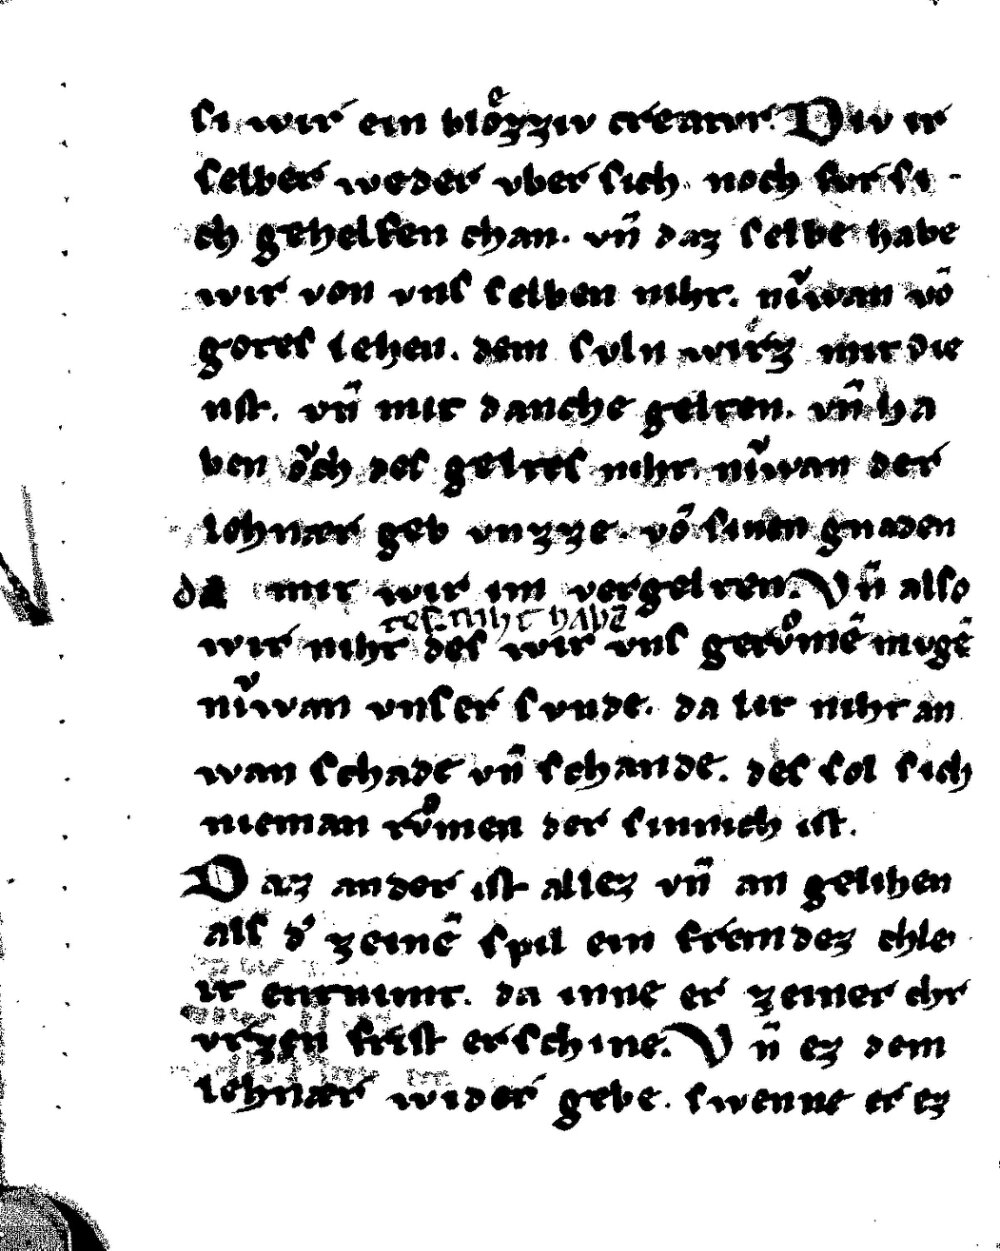 si wir ein bloͤzziv creatvr. Div ir
selber weder vber sich noch fvr si-
ch gehelfen chan. vn̄ daz selbe habe
wir von vns selben niht. niͮwan vō
gotes lehen. dem svln wirz mit die
nst. vn̄ mit danche gelten. vn̄ ha
ben oͮch des geltes niht. niͮwan der
lehnær geb vnzze. vō sinen gnaden
da mit wir im vergelten. Vn̄ also
tes niht habē
wir niht des wir vns gervͦmē mvgē
niͮwan vnser svnde. da lit niht an
wan schade vn̄ schande. des sol sich
nieman rvͦmen der sinnich ist.
Daz ander ist allez vn̄ an gelihen
als d' zeinē spil ein fremdez chle
it entnimt. da inne er zeiner chv
vrzen frist erschine. Vn̄ ez dem
lehnær wider gebe. swenne er ez